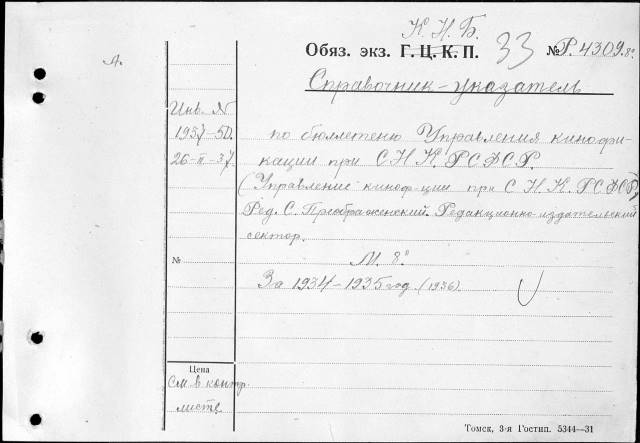 К. Н. Б.
Обяз. экз. Г. Ц. К. П. 33 № Р. 4309. 8°
А.
Справочник-указатель
Инв. №
1937-50.
26-II-37.
по бюллетеню Управления кинофи-
кации при С Н К. РСФСР.
(Управление киноф-ции при С Н К. РСФСР)
Ред. С. Преображенский. Редакционно-издательский
сектор.
№
М. 8°
За 1934-1935 год. (1936).
Цена
См. в контр.
листе.
Томск, 3-я Гостип. 5344—31